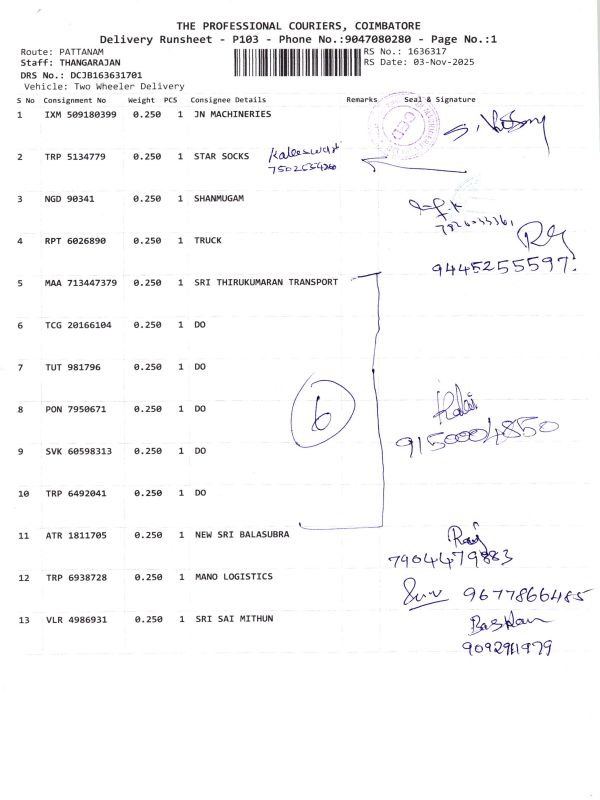 THE PROFESSIONAL COURIERS, COIMBATORE
Delivery Runsheet - P103 - Phone No.:9047080280 - Page No.:1
Route: PATTANAM RS No.: 1636317
Staff: THANGARAJAN RS Date: 03-Nov-2025
DRS No.: DCJB163631701
Vehicle: Two Wheeler Delivery
S No Consignment No Weight PCS Consignee Details Remarks Seal & Signature
1 IXM 509180399 0.250 1 JN MACHINERIES
2 TRP 5134779 0.250 1 STAR SOCKS
3 NGD 90341 0.250 1 SHANMUGAM
4 RPT 6026890 0.250 1 TRUCK
9445255597
5 MAA 713447379 0.250 1 SRI THIRUKUMARAN TRANSPORT
6 TCG 20166104 0.250 1 DO
7 TUT 981796 0.250 1 DO
8 PON 7950671 0.250 1 DO 6
9150004850
9 SVK 60598313 0.250 1 DO
10 TRP 6492041 0.250 1 DO
11 ATR 1811705 0.250 1 NEW SRI BALASUBRA Raj
7904479883
12 TRP 6938728 0.250 1 MANO LOGISTICS 9677866485
13 VLR 4986931 0.250 1 SRI SAI MITHUN Baskar
9092911979